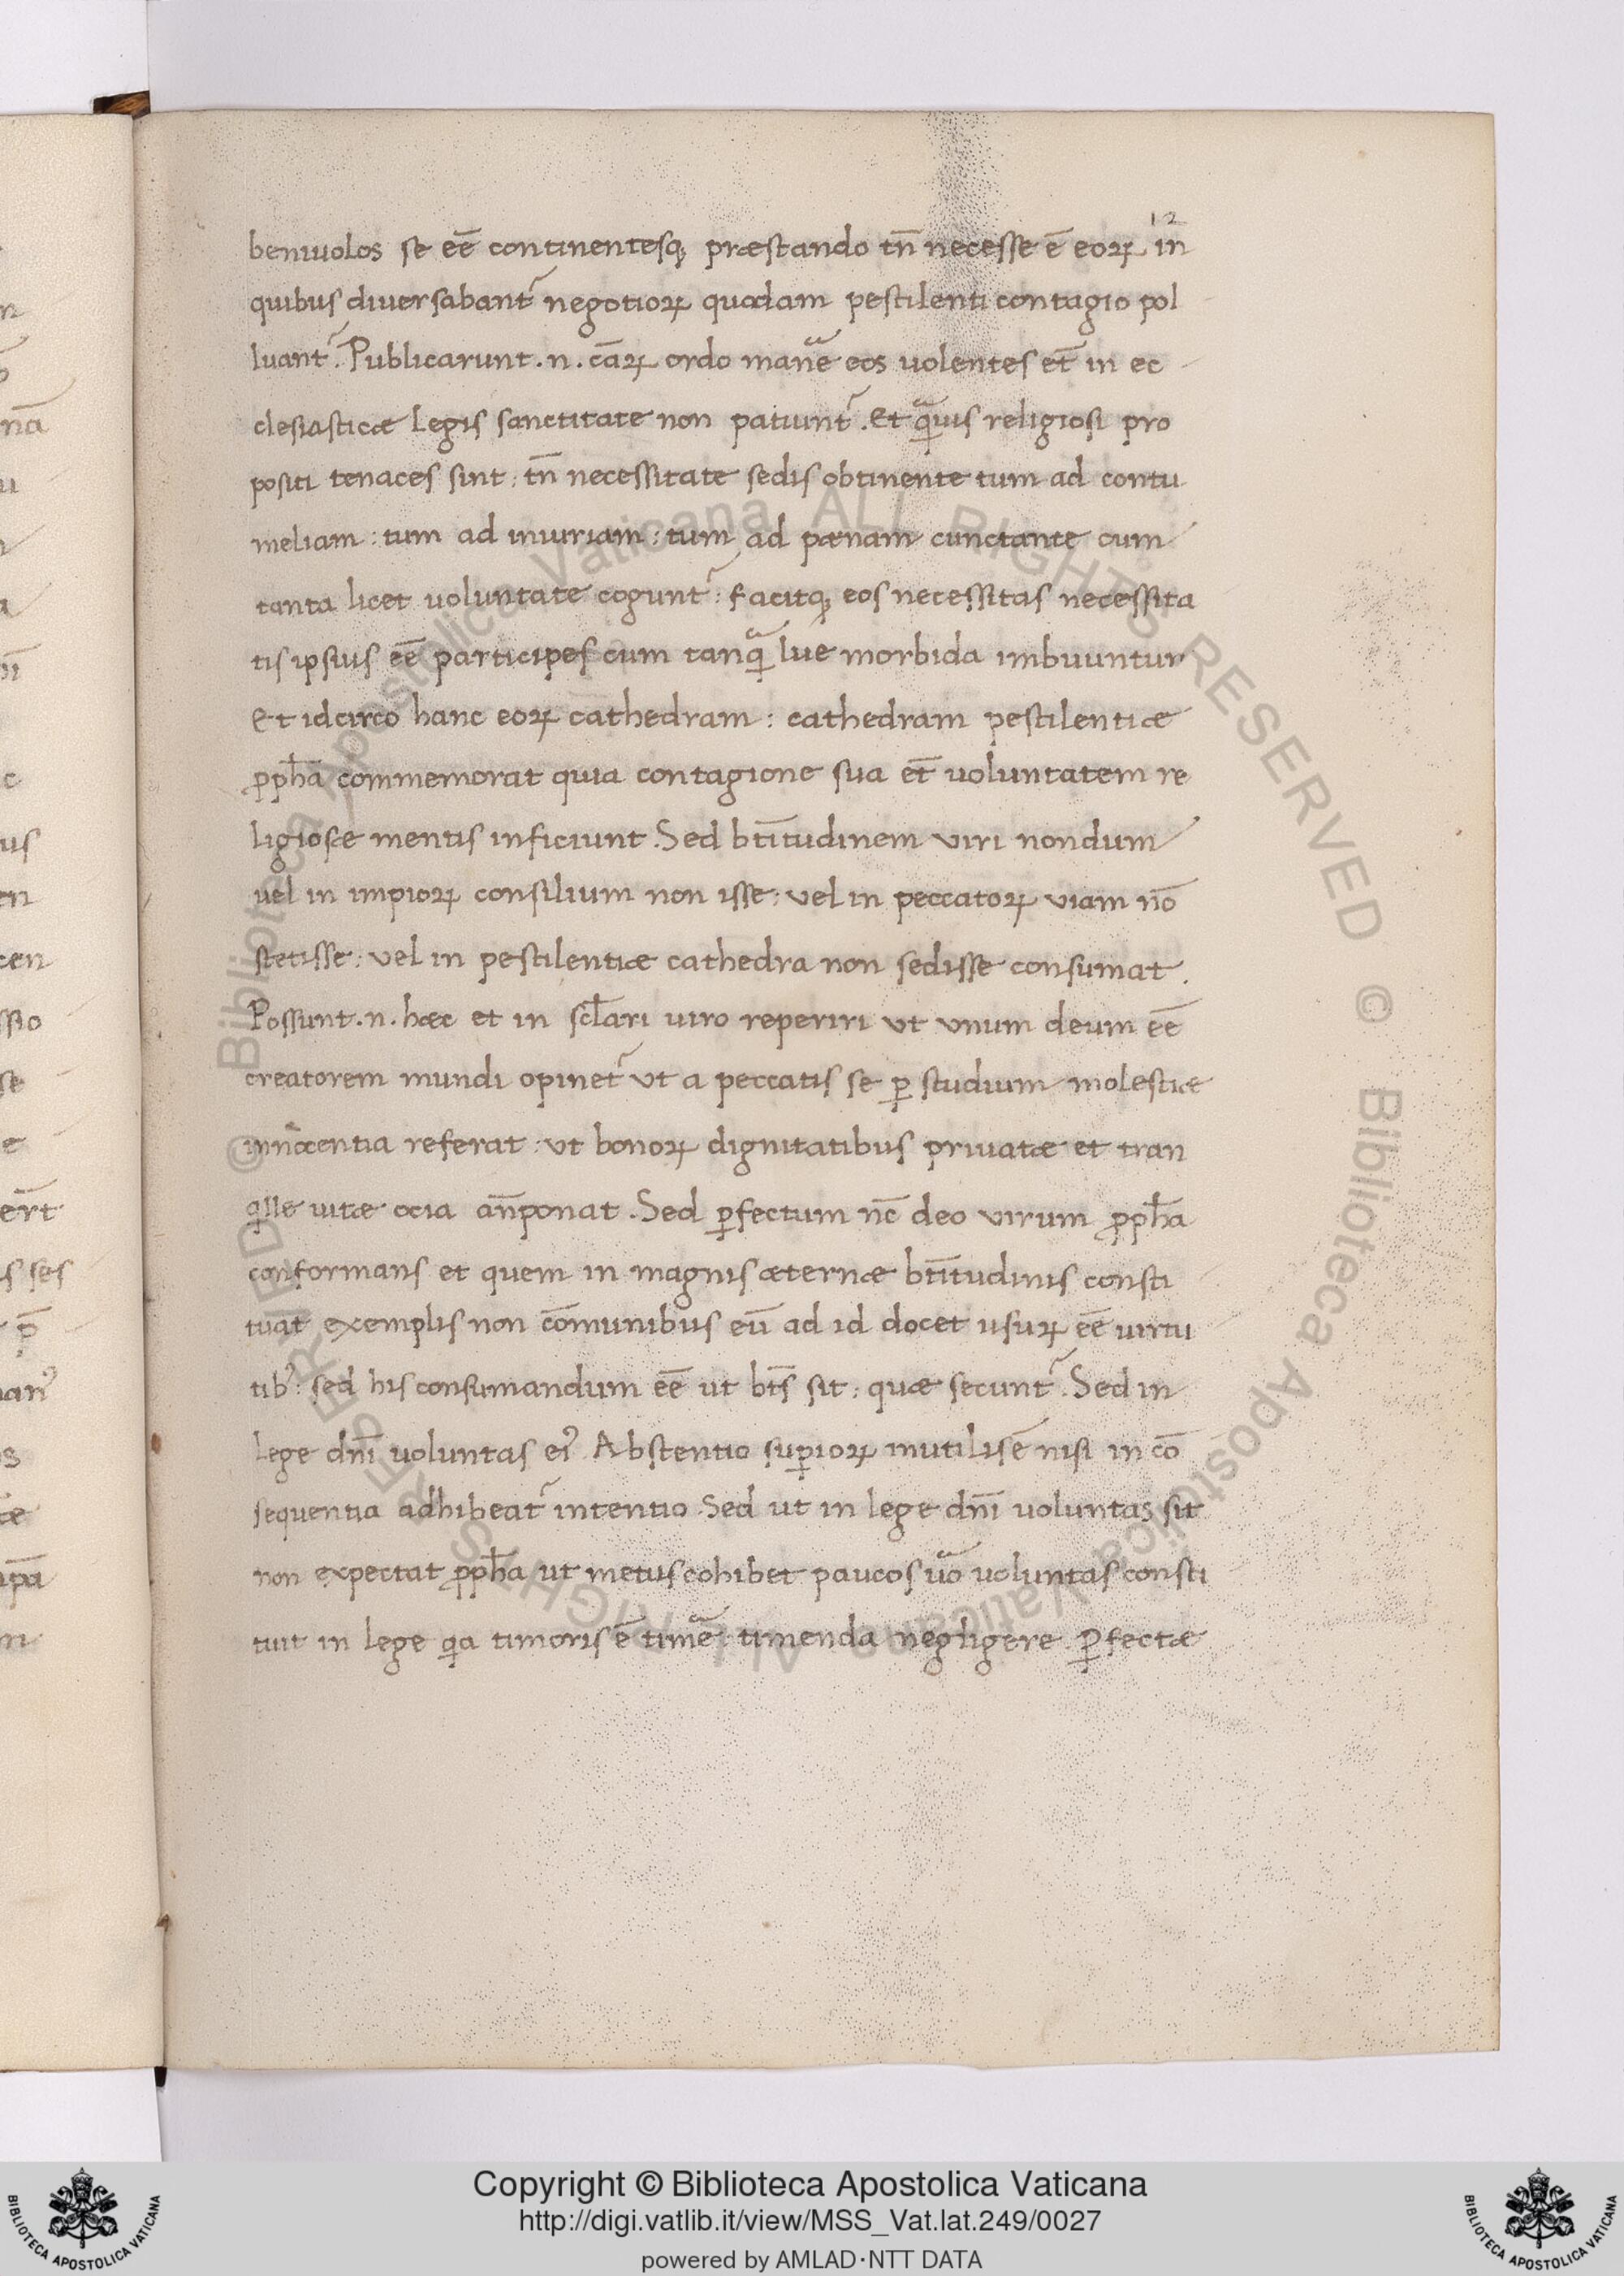 12
beniuolos se eē continentesq; præstando tn̄ necesse ē eoꝝ in
quibus diuersabant᷑ negotioꝝ quædam pestilenti contagio pol
luant᷑. Publicarunt .n. cāꝝ ordo manēͣ eos uolentes et̄ in ec
clesiasticæ legis sanctitate non patiunt᷑. Et q̨ͣuis religiosi pro
positi tenaces sint: tn̄ necessitate sedis obtinente tum ad contu
meliam: tum ad iniuriam: tum ad pænam cunctante cum
tanta licet uoluntate cogunt᷑: facitq; eos necessitas necessita
tis ipsius eē participes cum tanq̨ͣ lue morbida imbuuntur
Et idcirco hanc eoꝝ cathedram: cathedram pestilentiæ
ꝓph̄a commemorat quia contagione sua et̄ uoluntatem re
ligiosæ mentis inficiunt. Sed bt̄itudinem viri nondum
uel in impioꝝ consilium non isse: vel in peccatoꝝ viam nō
stetisse: vel in pestilentiæ cathedra non sedisse consumat.
Possunt .n. hæc et in scl̄ari uiro reperiri ut vnum deum eē
creatorem mundi opinet᷑ vt a peccatis se ꝑ studium molestiæ
innocentia referat: ut bonoꝝ dignitatibus priuatæ et tran
q̨lle uitæ ocia an̄ponat. Sed ꝑfectum nc̄ deo virum ꝓph̄a
conformans et quem in magnis æternæ bt̄itudinis consti
tuat exemplis non cōmunibus eū ad id docet usuꝝ eē uirtu
tibꝰ: sed his consumandum eē ut bt̄s sit: quæ secunt᷑. Sed in
lege dn̄i uoluntas eiꝰ. Abstentio suꝑioꝝ inutilis ē nisi in cō
sequentia adhibeat᷑ intentio. Sed ut in lege dn̄i uoluntas sit
non expectat ꝓph̄a ut metus cohibet paucos ūo uoluntas consti
tuit in lege q̨a timoris ē timēͣ: timenda negligere. ꝑfectæ
Copyright © Biblioteca Apostolica Vaticana
http://digi.vatlib.it/view/MSS_Vat.lat.249/0027
powered by AMLAD·NTT DATA